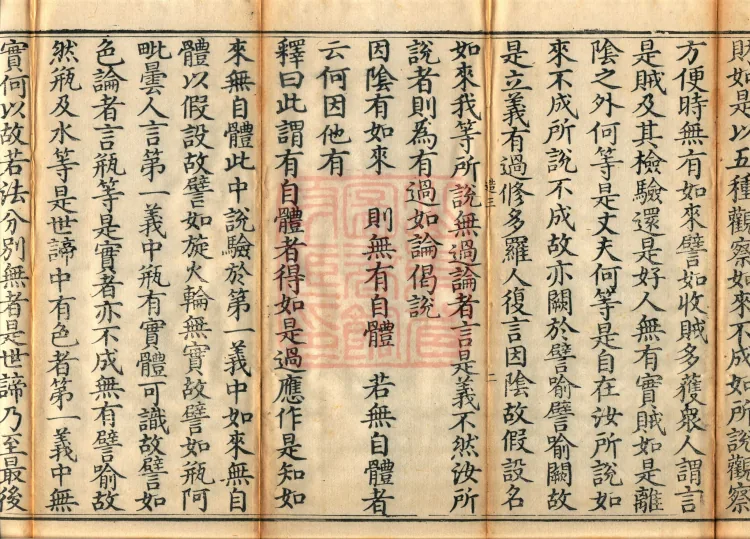 如是以五種觀察如來不成如所說觀察
方便時無有如來譬如收賊多獲衆人謂言
是賊及其檢驗還是好人無有實賊如是離
陰之外何等是丈夫何等是自在汝所說如
來不成所說不成故亦闕於譬喻譬喻闕故
是立義有過修多羅人復言因陰故假設名
三 二
如來我等所說無過論者言是義不然汝所
說者則爲有過如論偈說
因陰有如來 則無有自體 若無自體者
云何因他有
釋曰此謂有自體者得如是過應作是知如
來無自體此中說驗於第一義中如來無自
體以假設故譬如旋火輪無實故譬如瓶阿
毗曇人言第一義中瓶有實體可識故譬如
色論者言瓶等是實者亦不成無有譬喻故
然瓶及水等是世諦中有色者第一義中無
實何以故若法分別無者是世諦乃至最後